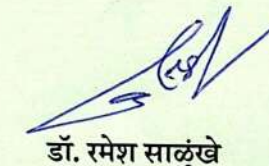 डॉ. रमेश साळुंखे